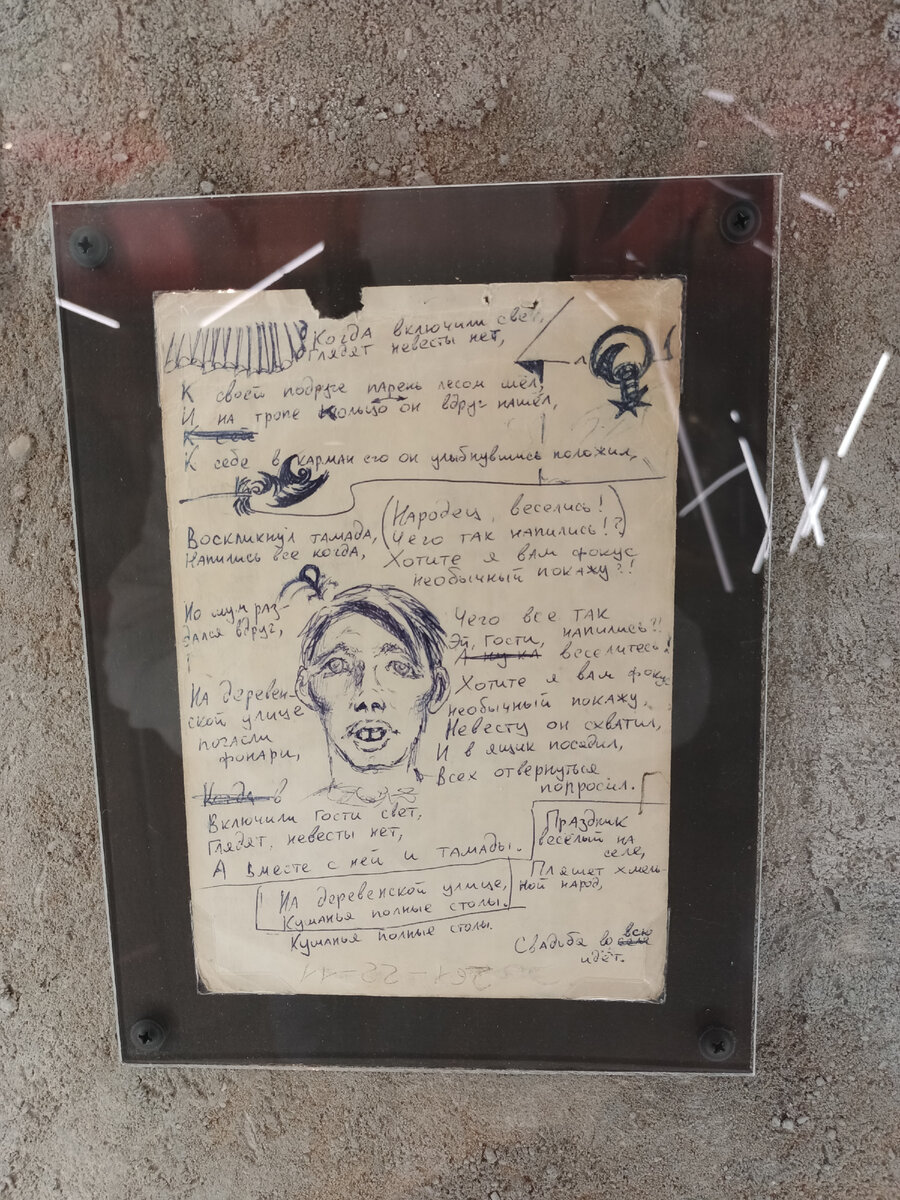 Когда включили свет,
Глядят невесты нет,
К своей подруге парень лесом шёл,
И на тропе кольцо он вдруг нашёл,
К себе
К себе в карман его он улыбнувшись положил,
Воскликнул тамада,
Напились все когда,
(Народец, веселись!
Чего так напились!?)
Хотите я вам фокус
необычный покажу?!
Но шум раз-
дался вдруг,
На деревен-
ской улице
погасли
фонари,
Чего все так
напились?!
Эй, гости,
А ну ка веселитесь!
Хотите я вам фокус
необычный покажу,
Невесту он схватил,
И в ящик посадил,
Всех отвернуться
попросил.
Когда в
Включили гости свет,
Глядят, невесты нет,
А вместе с ней и тамады.
Праздник
весёлый на
селе,
Пляшет хмель-
ной народ,
На деревенской улице,
Кушанья полные столы.
Кушанья полные столы.
Свадьба во всю
идёт.
261-52-11